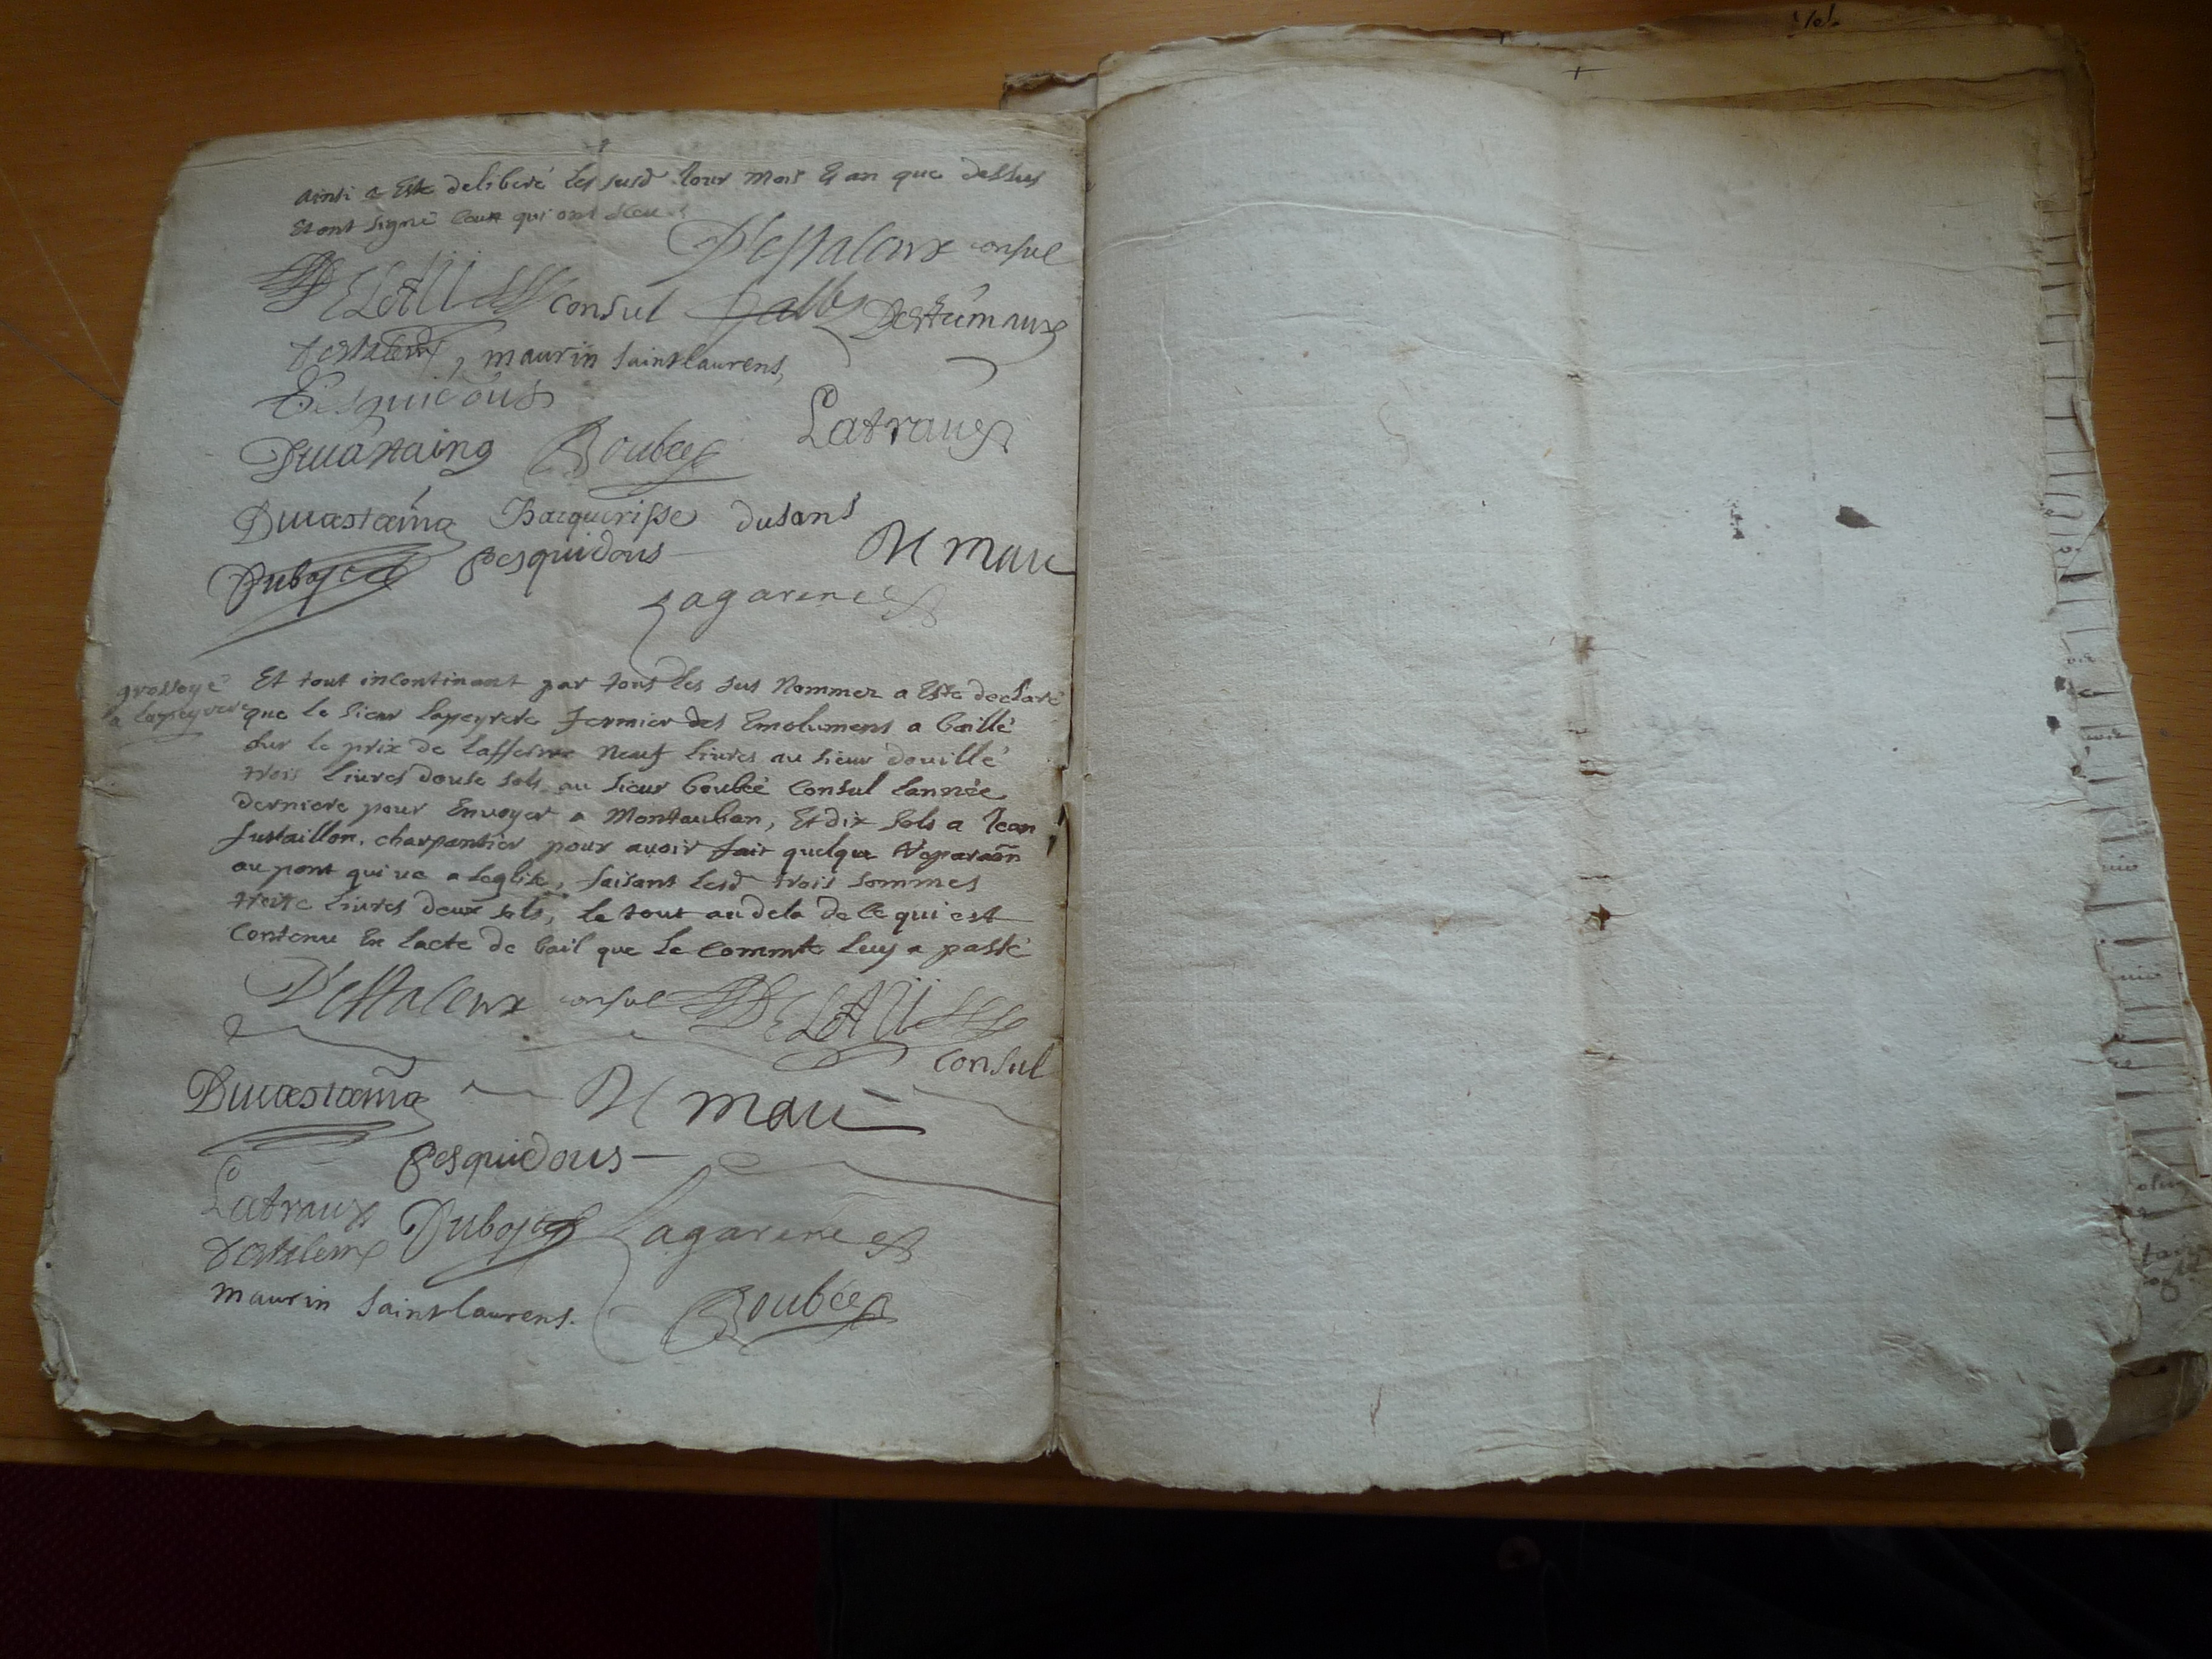 ainsi a Esté deliberé les susd Jour mois & an que dessus
Et ont signé Ceux qui ont sceu
D'estaleux consul
consul Dalbs
maurin saint laurens,
Pesquidous
Latraux
Ducastaing Boubee
Ducastaing Bacquerisse dusans
Dubosc pesquidous mau
Lagarene
grossoyé
a lapeyrere
Et tout incontinant par tous les sus Nommez a Esté declaré
que le sieur lapeyrere fermier des Emolumens a baillé
sur le prix de Lafferme neuf livres au sieur douillé
trois livres douse sols au sieur boubée Consul lannée
derniere pour Envoyer a Montauban, Et dix sols a Jean
fustaillon, charpantier pour avoir fait quelque Reparaõn
au pont qui va a leglise, faisant lesd trois sommes
treise livres deux sols, le tout au dela de Ce qui est
Contenu En lacte de bail que le Commte luy a passé
D'estaleux consul
Consul
Ducastaing mau
pesquidous
Latraux Dubosc Lagarene
maurin saint laurens.
Boubée